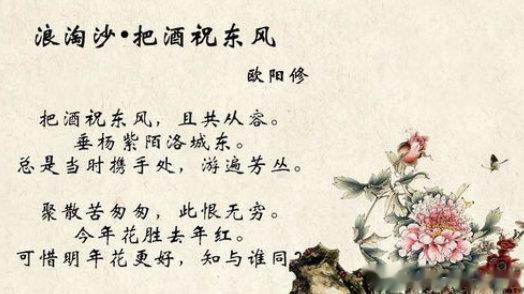 浪淘沙•把酒祝东风
欧阳修
把酒祝东风，且共从容。
垂杨紫陌洛城东。
总是当时携手处，游遍芳丛。
聚散苦匆匆，此恨无穷。
今年花胜去年红。
可惜明年花更好，知与谁同？